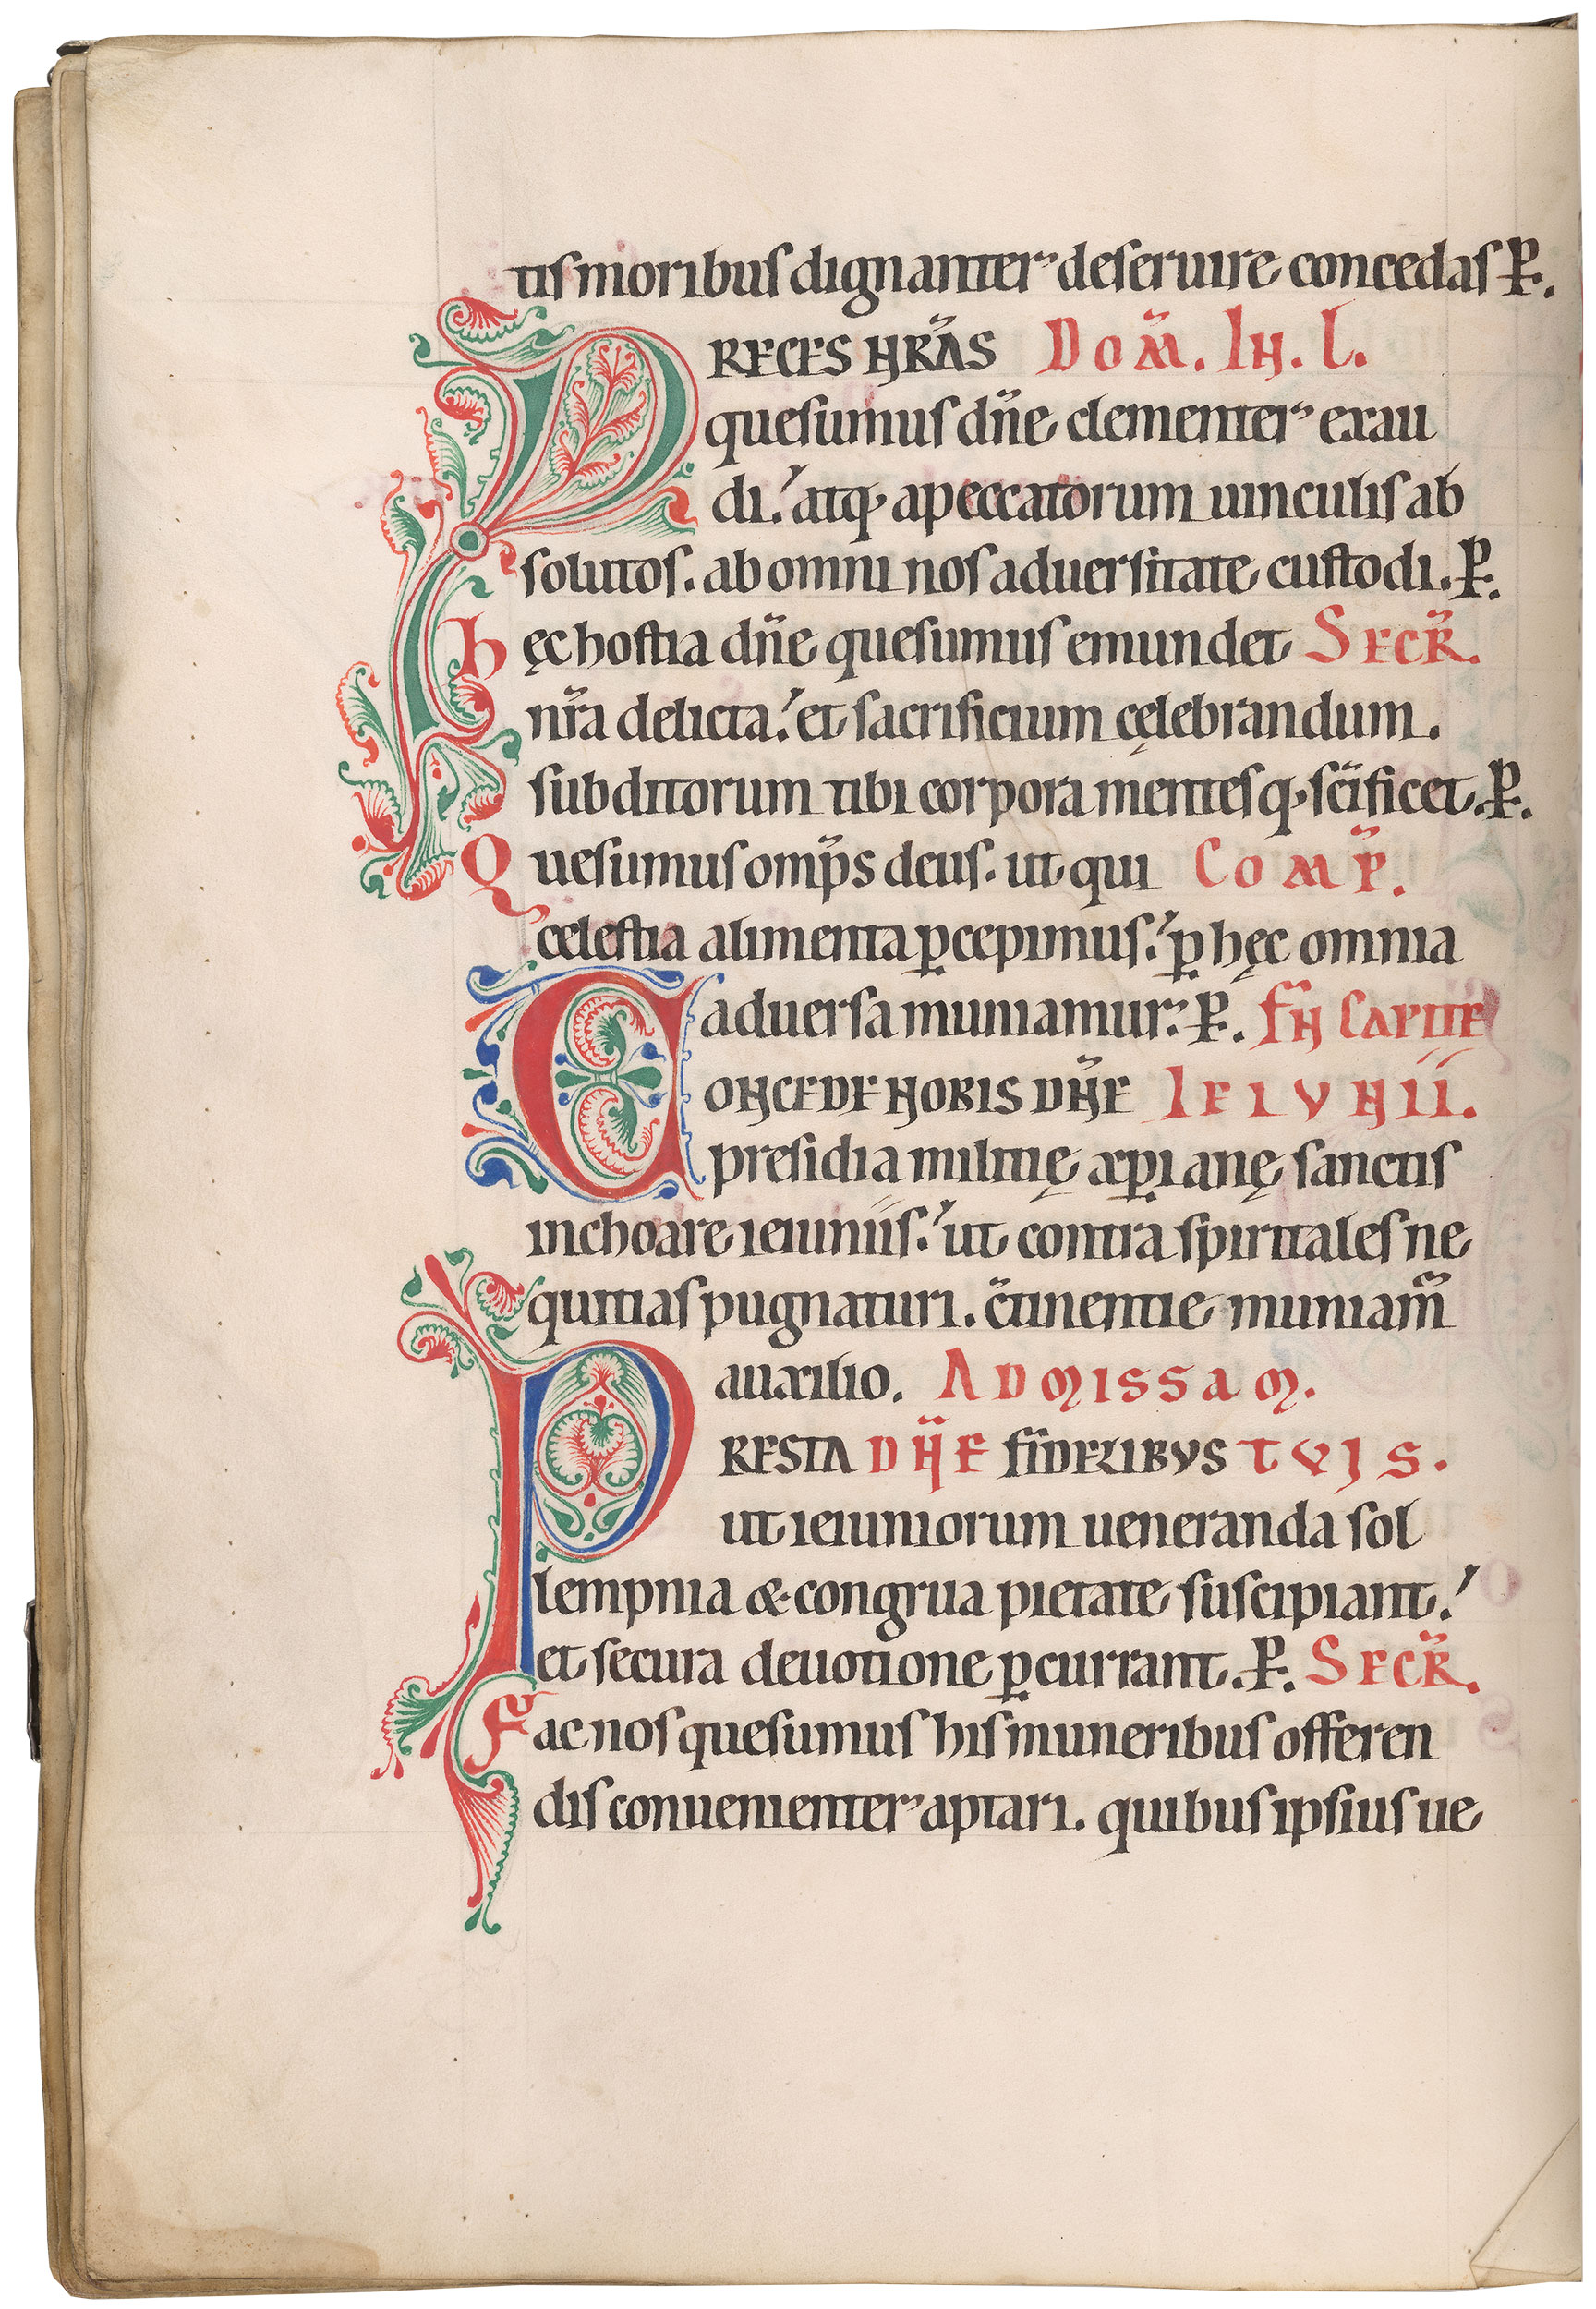 tis moribus dignanter deseruire concedas P̱.
PRECES NR̃AS DOM̃. IN. L.
quesumus dñe clementer exau
di. atq; a peccatorum uinculis ab
solutos. ab omni nos aduersitate custodi. P̱.
hęc hostia dñe quesumus emundet SECR̃.
nr̃a delicta. et sacrificium cęlebrandum.
subditorum tibi corpora mentesq; sc̃ificet. P̱.
Quesumus omp̃s deus. ut qui COMP̃.
celestia alimenta ꝑcepimus. ꝑ hęc omnia
aduersa muniamur. P̱. IN CAPITE
CONCEDE NOBIS DÑE IEIVNII.
presidia militię xp̃ianę sanctis
inchoare ieiuniis. ut contra spiritales ne
quitias pugnaturi. c̃tinentie muniam̃
auxilio. AD MISSAM.
PRESTA DÑE FIDELIBVS TVIS.
ut ieiuniorum ueneranda sol
lempnia & congrua pietate suscipiant.
et secura deuotione ꝑcurrant. P̱. SECR̃.
Fac nos quesumus his muneribus offeren
dis conuenienter aptari. quibus ipsius ue